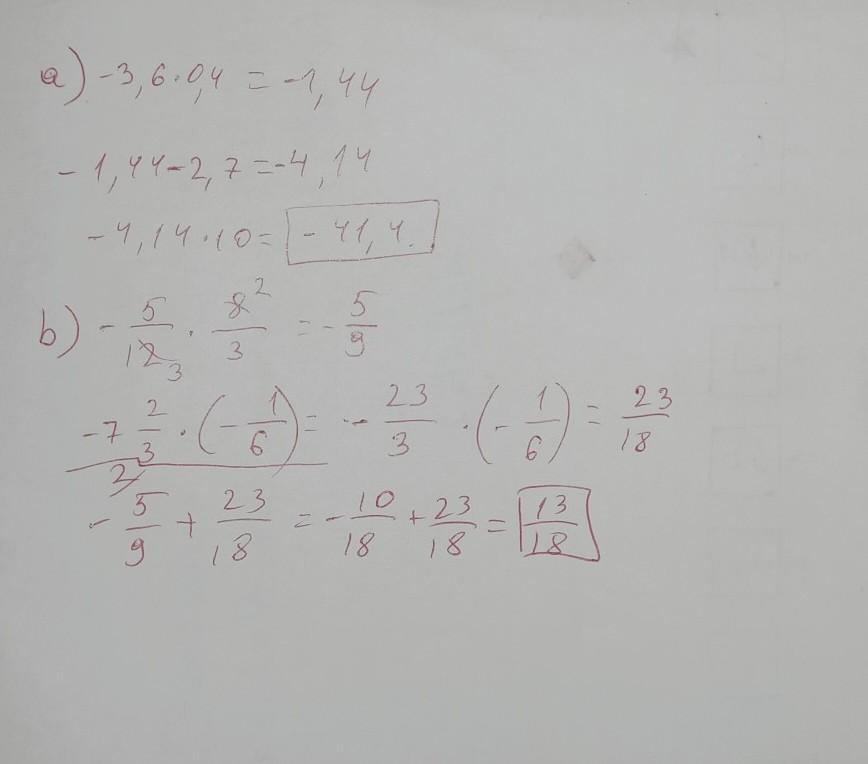 a) -3,6·0,4 = -1,44
-1,44-2,7=-4,14
-4,14·10= -41,4.
b) - 5/12 3 · 8 2/3 = - 5/9
-7 2/3 · (- 1/6) = - 23/3 · (- 1/6) = 23/18
2
- 5/9 + 23/18 = - 10/18 + 23/18 = 13/18